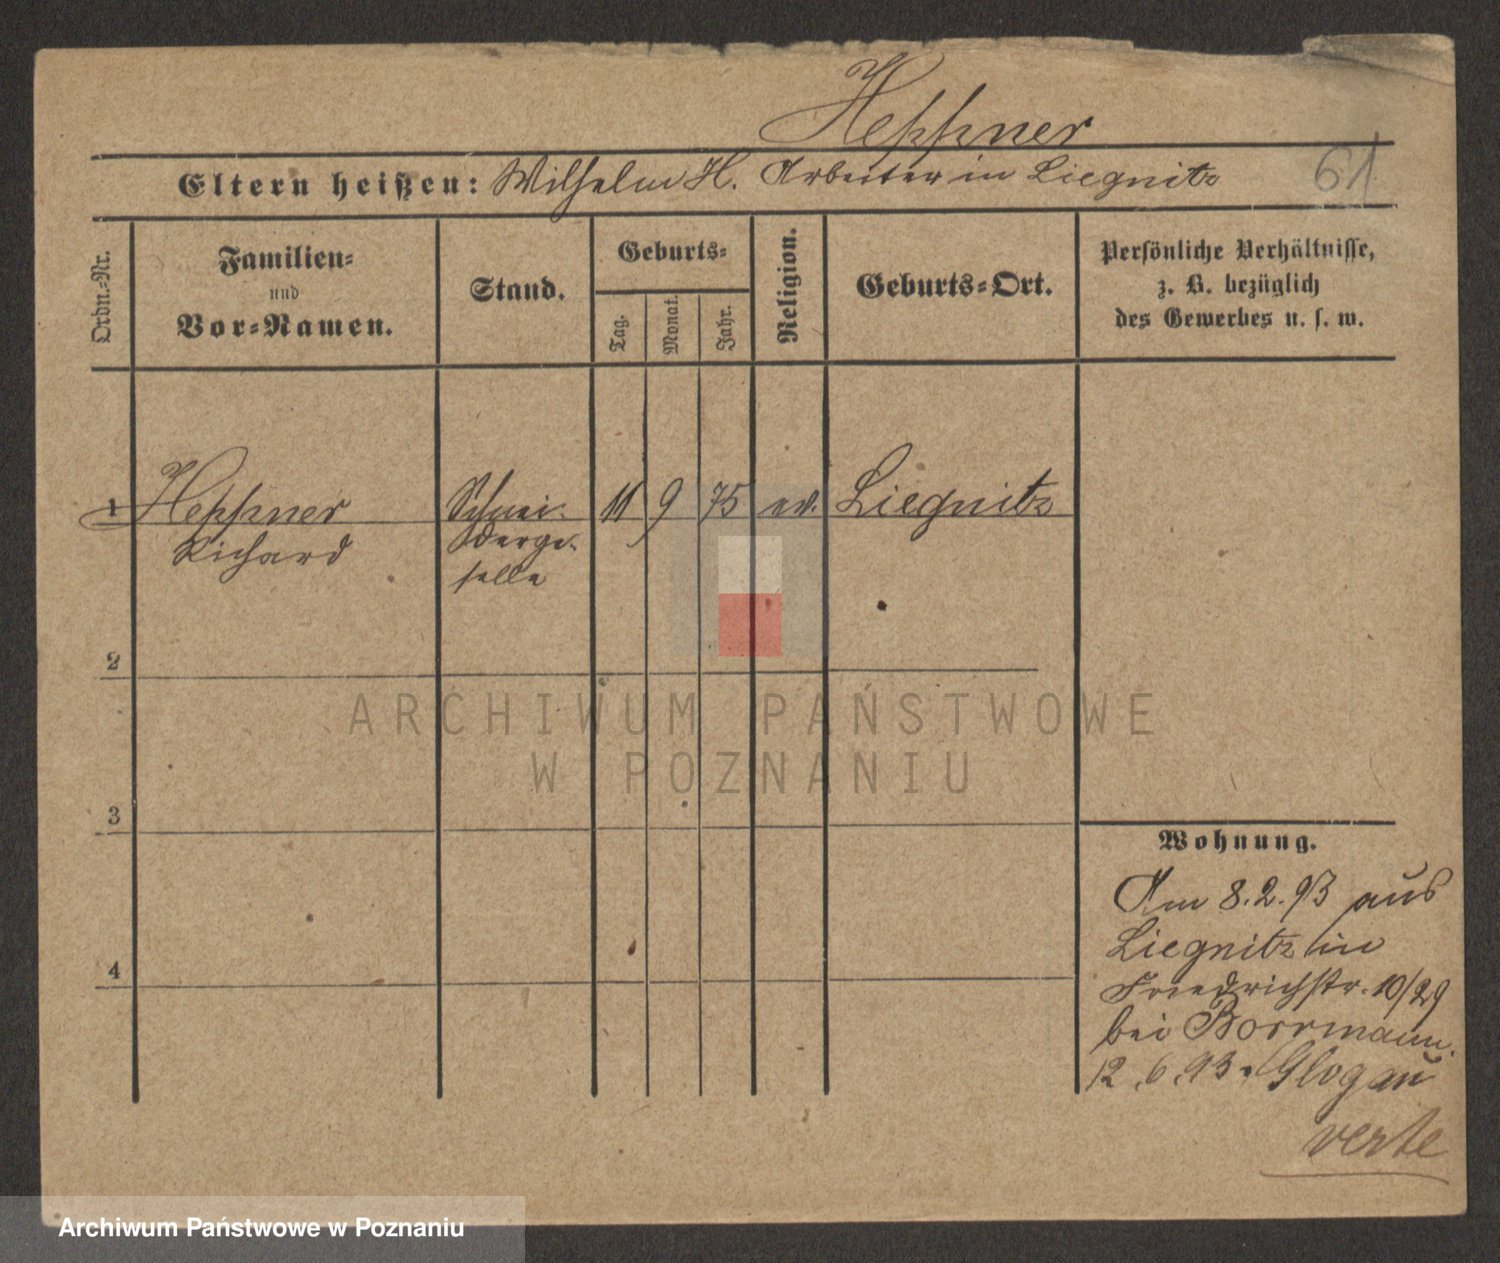 Heppner
Eltern heißen: Wilhelm H. Arbeiter in Liegnitz
61
Ordn.-Nr.
Familien-
und
Vor-Namen.
Stand.
Geburts-
Tag.
Monat.
Jahr.
Religion.
Geburts-Ort.
Persönliche Verhältnisse,
z. B. bezüglich
des Gewerbes u. s. w.
1 Heppner Schnei- 11 9 75 ev. Liegnitz
Richard derge-
selle
2
3
4
Wohnung.
Am 8.2.93 aus
Liegnitz in
Friedrichstr. 10/29
bei Borrmann.
12.6.93. Glogau
verte
ARCHIWUM PAŃSTWOWE
W POZNANIU
Archiwum Państwowe w Poznaniu